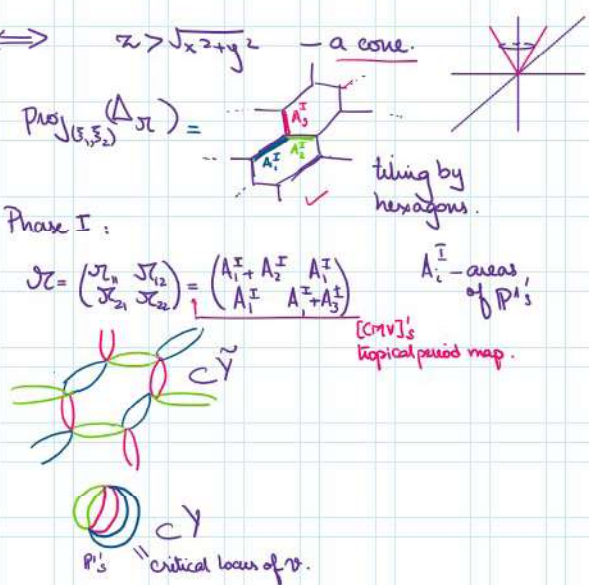 ⟺ z > √x²+y² – a cone.
Proj_(ξ₁,ξ₂) (Δ_Ω) =
A₃ᴵ
A₁ᴵ A₂ᴵ
tiling by
hexagons.
Phase I :
Ω = (Ω₁₁ Ω₁₂ Ω₂₁ Ω₂₂) = (A₁ᴵ+A₂ᴵ A₁ᴵ A₁ᴵ A₁ᴵ+A₃ᴵ) Aᵢᴵ – areas
of P¹'s
[CMV]'s
tropical period map.
⊂ Ỹ
⊂ Y
P¹'s " critical locus of v.